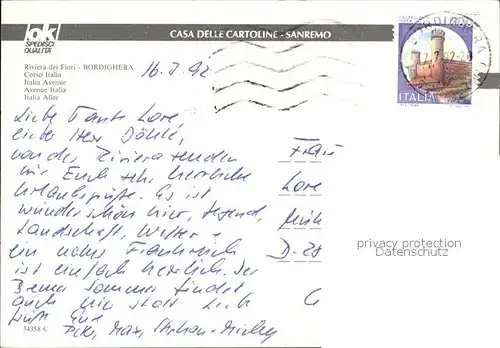 ok
SPEDISCI
QUALITÀ
CASA DELLE CARTOLINE - SANREMO
Riviera dei Fiori - BORDIGHERA
Corso Italia
Italia Avenue
Avenue Italia
Italia Allee
16.7.92
ITALIA
Liebe Tante Lore,
lieber Herr Döhle,
von der Riviera senden
wir Euch sehr herzliche
Urlaubsgrüße. Es ist
wunderschön hier, Gegend,
Landschaft, Wetter -
ein nahes Frankreich
ist einfach herrlich. Der
Sommer findet
auch hier statt. Lieb
grüßt Euch
Max, Stephan
Frau
Lore
D-28
privacy protection
Datenschutz
34358 C